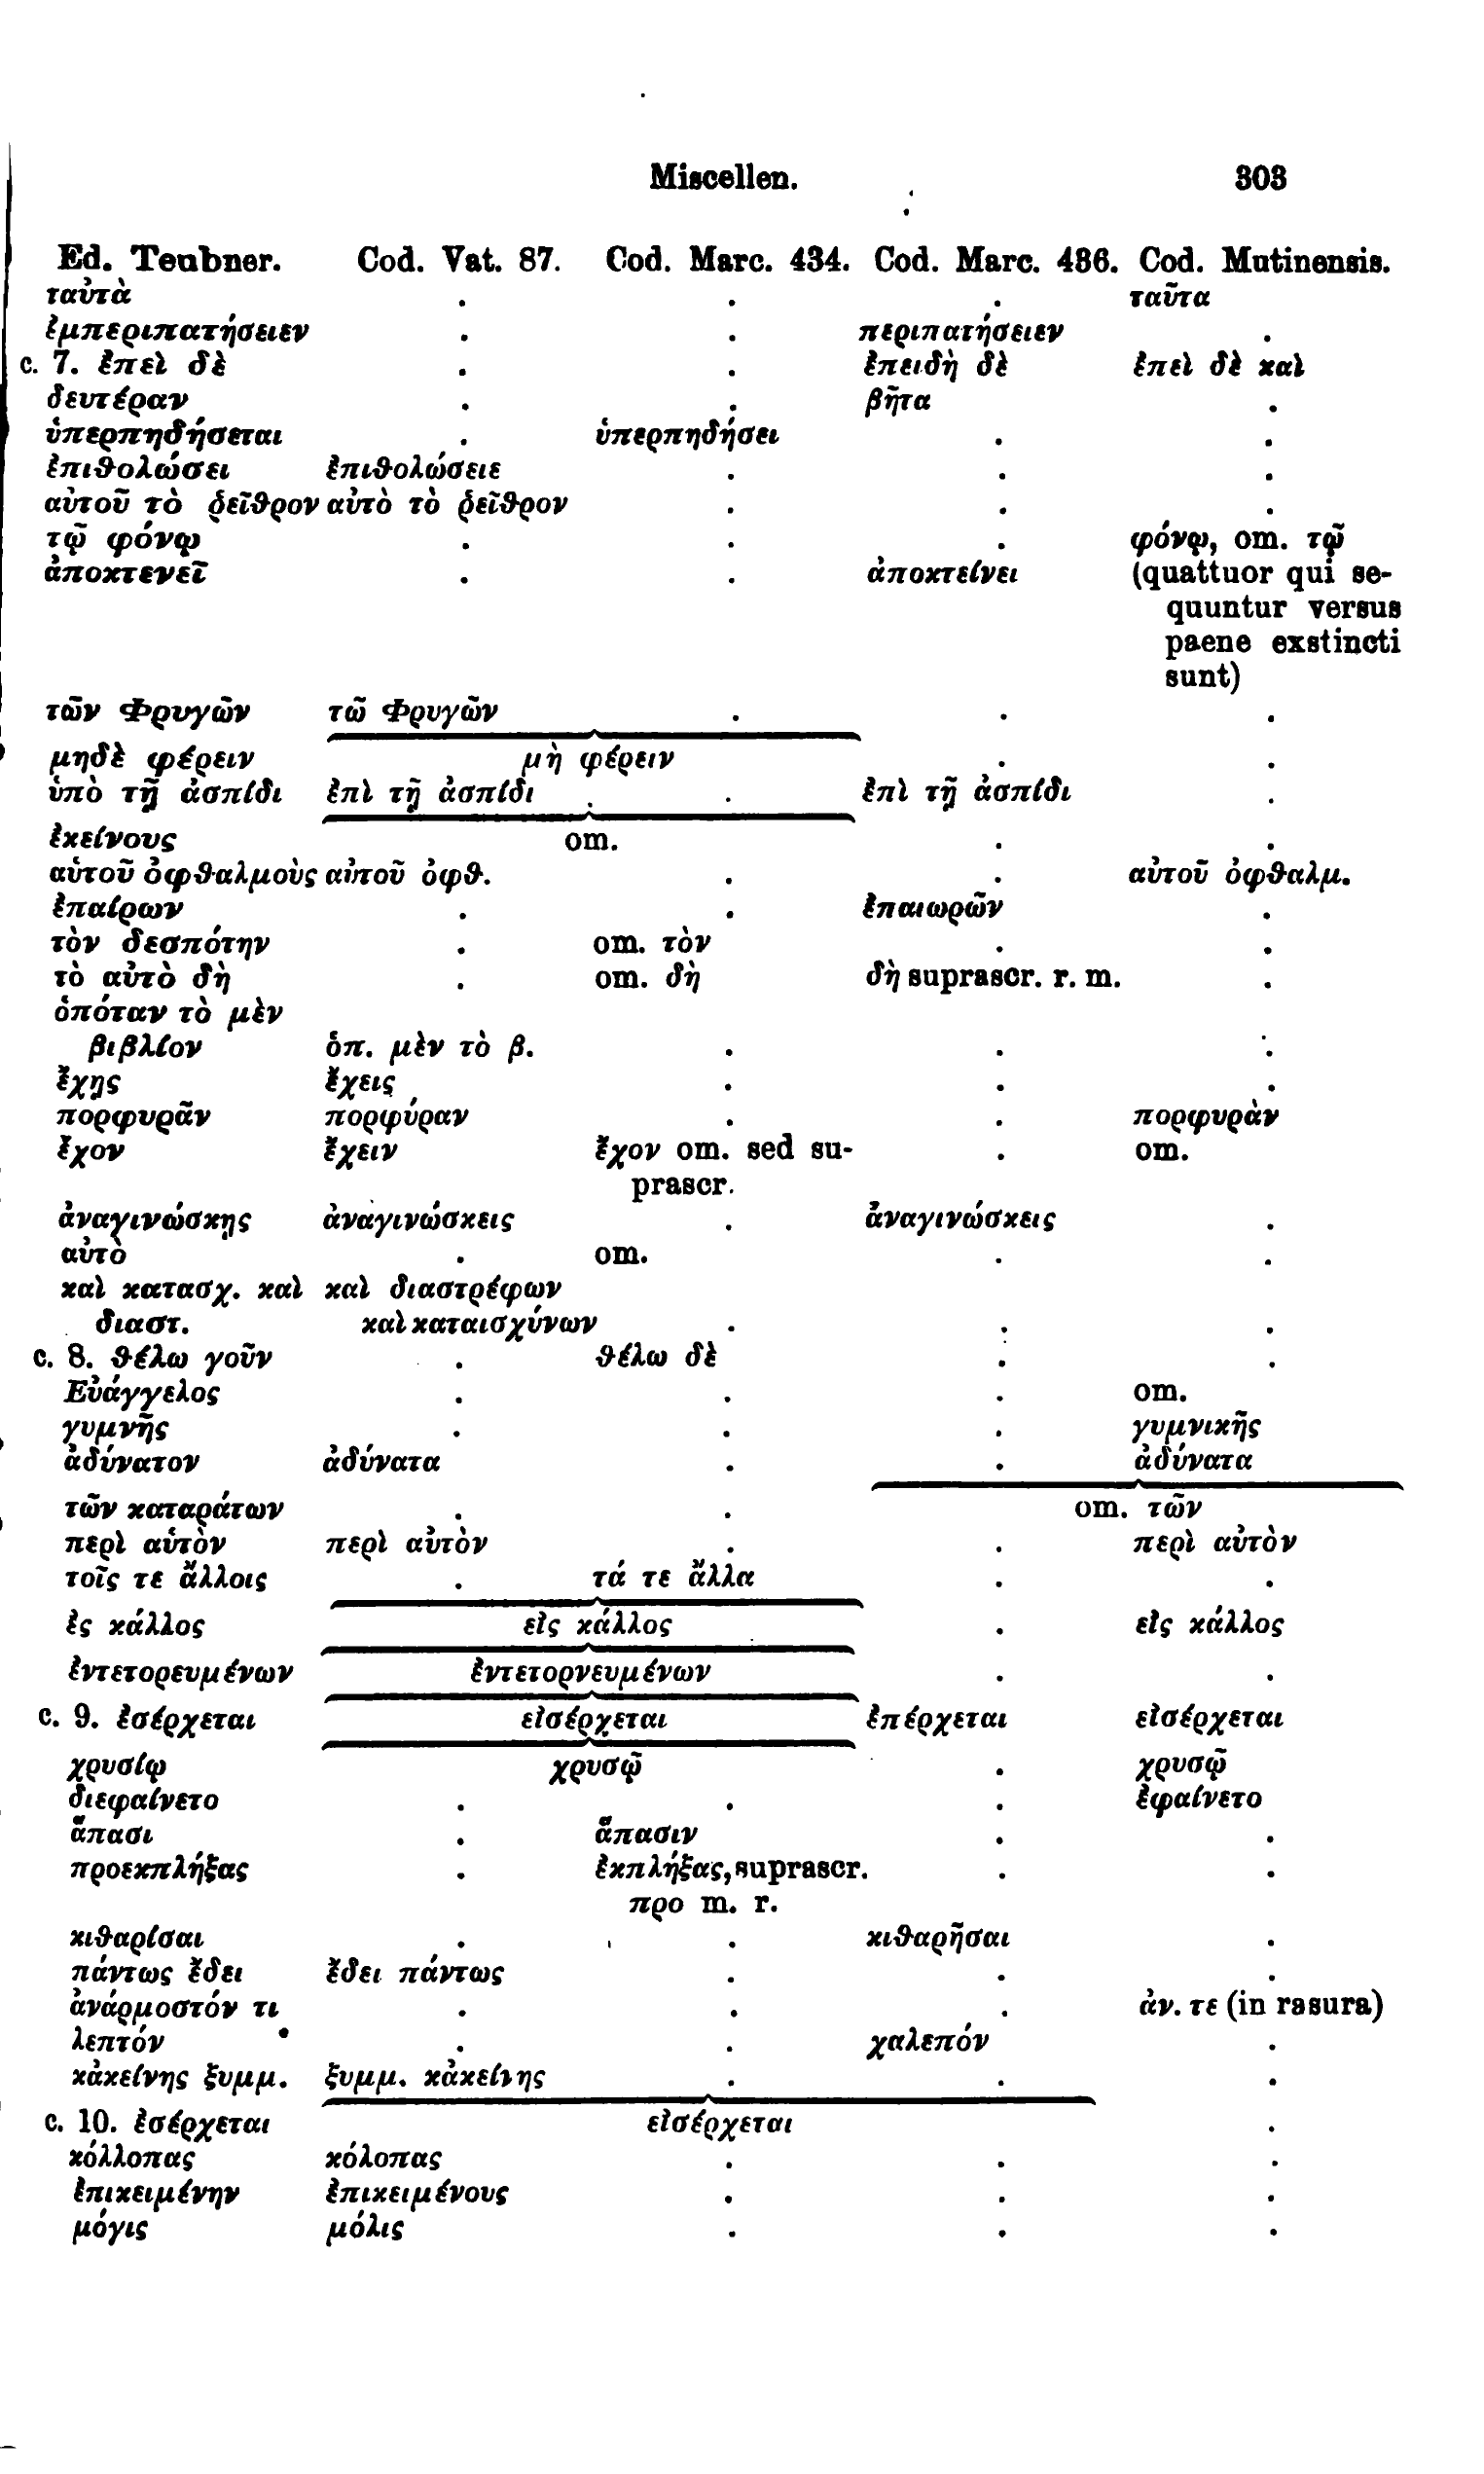 Miscellen. 303
Ed. Teubner. Cod. Vat. 87. Cod. Marc. 434. Cod. Marc. 436. Cod. Mutinensis.
ταὐτὰ . . . ταῦτα
ἐμπεριπατήσειεν . . περιπατήσειεν .
c. 7. ἐπεὶ δὲ . . ἐπειδὴ δὲ ἐπεὶ δὲ καὶ
δευτέραν . . βῆτα .
ὑπερπηδήσεται . ὑπερπηδήσει . .
ἐπιθολώσει ἐπιθολώσειε . . .
αὐτοῦ τὸ ῥεῖθρον αὐτὸ τὸ ῥεῖθρον . . .
τῷ φόνῳ . . . φόνῳ, om. τῷ
ἀποκτενεῖ . . ἀποκτείνει (quattuor qui se-
quuntur versus
paene exstincti
sunt)
τῶν Φρυγῶν τῶ Φρυγῶν . . .
μηδὲ φέρειν μὴ φέρειν . .
ὑπὸ τῇ ἀσπίδι ἐπὶ τῇ ἀσπίδι . . ἐπὶ τῇ ἀσπίδι .
ἐκείνους om. . .
αὑτοῦ ὀφθαλμοὺς αὐτοῦ ὀφθ. . . αὐτοῦ ὀφθαλμ.
ἐπαίρων . . ἐπαιωρῶν .
τὸν δεσπότην . om. τὸν . .
τὸ αὐτὸ δὴ . om. δὴ δὴ suprascr. r. m. .
ὁπόταν τὸ μὲν
βιβλίον ὁπ. μὲν τὸ β. . . .
ἔχῃς ἔχεις . . .
πορφυρᾶν πορφύραν . . πορφυρὰν
ἔχον ἔχειν ἔχον om. sed su- . om.
prascr.
ἀναγινώσκῃς ἀναγινώσκεις . ἀναγινώσκεις .
αὐτὸ . om. . .
καὶ κατασχ. καὶ καὶ διαστρέφων
διαστ. καὶ καταισχύνων . . .
c. 8. θέλω γοῦν . θέλω δὲ . .
Εὐάγγελος . . . om.
γυμνῆς . . . γυμνικῆς
ἀδύνατον ἀδύνατα . . ἀδύνατα
τῶν καταράτων . . om. τῶν
περὶ αὑτὸν περὶ αὐτὸν . . περὶ αὐτὸν
τοῖς τε ἄλλοις . τά τε ἄλλα . .
ἐς κάλλος εἰς κάλλος . εἰς κάλλος
ἐντετορευμένων ἐντετορνευμένων . .
c. 9. ἐσέρχεται εἰσέρχεται ἐπέρχεται εἰσέρχεται
χρυσίῳ χρυσῷ . χρυσῷ
διεφαίνετο . . . ἐφαίνετο
ἅπασι . ἅπασιν . .
προεκπλήξας . ἐκπλήξας, suprascr. . .
προ m. r.
κιθαρίσαι . . κιθαρῆσαι .
πάντως ἔδει ἔδει πάντως . . .
ἀνάρμοστόν τι . . . ἀν. τε (in rasura)
λεπτόν . . χαλεπόν .
κἀκείνης ξυμμ. ξυμμ. κἀκείνης . . .
c. 10. ἐσέρχεται εἰσέρχεται .
κόλλοπας κόλοπας . . .
ἐπικειμένην ἐπικειμένους . . .
μόγις μόλις . . .